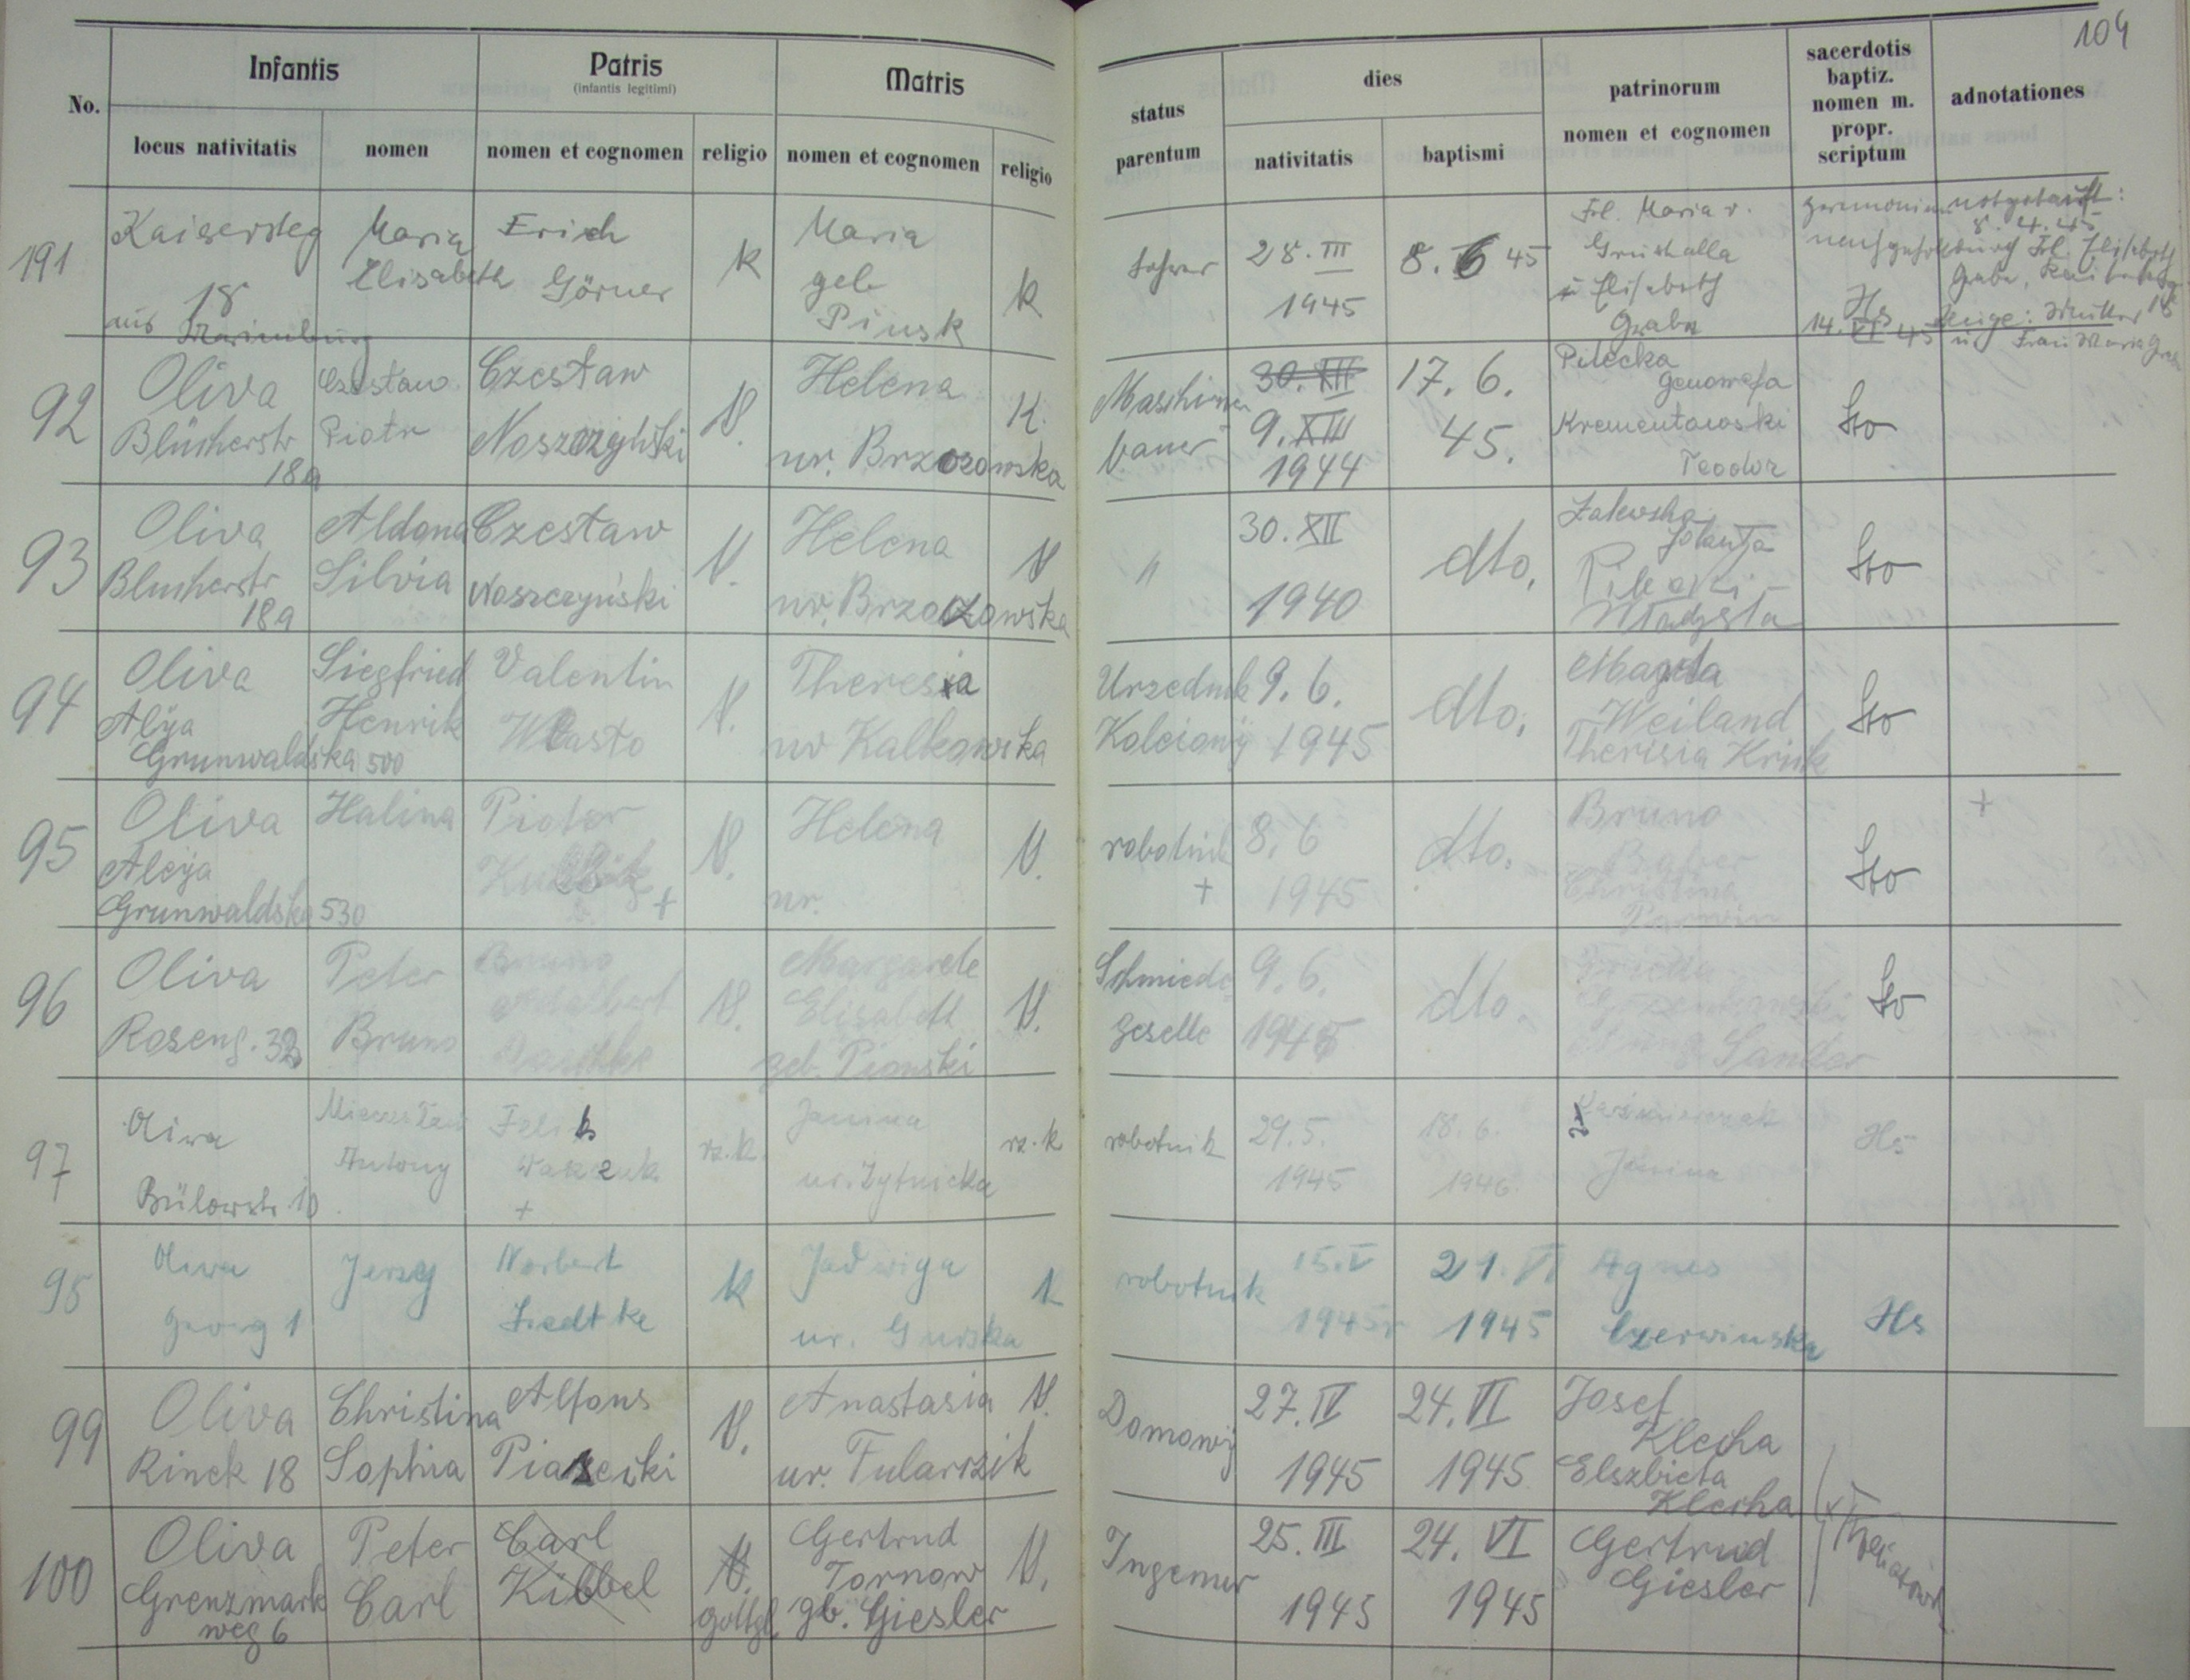 104
No.
Infantis
locus nativitatis
nomen
Patris
(infantis legitimi)
nomen et cognomen
religio
Matris
nomen et cognomen
religio
status
parentum
dies
nativitatis
baptismi
patrinorum
nomen et cognomen
sacerdotis
baptiz.
nomen m.
propr.
scriptum
adnotationes
191
Kaisersteg
18
aus Marienburg
Maria
Elisabeth
Erich
Görner
k
Maria
geb
Pinsk
k
28. III
1945
8. 6 45
Frl. Maria v.
Gruschalla
u Elisabeth
Grabn
Hs
14. VI 45
notgetauft:
8. 4. 45
durch Frl. Elisabeth
Zeuge: Mutter
u Frau Maria
92
Oliva
Blücherstr
18a
Czesław
Piotr
Czesław
Noszczyński
N.
Helena
ur. Brzozowska
K.
Maschinen
bauer
30. XII
9. XII
1944
17. 6.
45.
Pilecka
Genowefa
Krementowski
Teodor
Sto
93
Oliva
Blucherstr
18a
Aldona
Silvia
Czesław
Noszczyński
N.
Helena
ur. Brzozowska
N
"
30. XII
1940
dto.
Zalewska
Jolanta
Pilecki
Władysła
Sto
94
Oliva
Alija
Grunwaldska 500
Siegfried
Henrik
Valentin
Wlasto
N.
Theresia
ur Kalkowska
Urzednik
Koleiowy
9. 6.
1945
dto.
Magda
Weiland
Therisia Kruk
Sto
95
Oliva
Aleija
Grunwaldska 530
Halina
Piotor
+
N.
Helena
ur.
N.
robotnik
+
8. 6
1945
dto.
Bruno
Christina
Sto
+
96
Oliva
Roseng. 32
Peter
Bruno
Bruno
Adalbert
N.
Margarete
Elisabeth
geb. Pionski
N.
Schmiede
geselle
9. 6.
1945
dto.
Frieda
Sander
Sto
97
Oliwa
Bülowstr. 10
Mieczesław
Antony
Feliks
Waszczuk
+
rz.k.
Janina
ur. Żytnicka
rz.k
robotnik
29. 5.
1945
18. 6.
1946.
Kazimierczak
Janina
Hs
98
Oliwa
Georg 1
Jerzy
Norbert
Liedtke
k
Jadwiga
ur. Gurska
k
robotnik
15. V
1945r
21. VI
1945
Agnes
Czerwinska
Hs
99
Oliva
Rinek 18
Christina
Sophia
Alfons
Piasecki
N.
Anastasia
ur. Fularszik
N.
Domowÿ
27. IV
1945
24. VI
1945
Josef
Klecha
Elszbieta
Klecha
100
Oliva
Grenzmark
weg 6
Peter
Carl
Carl
Kibbel
N.
gottgl.
Gertrud
Tornow
gb. Giesler
N.
Ingenier
25. III
1945
24. VI
1945
Gertrud
Giesler